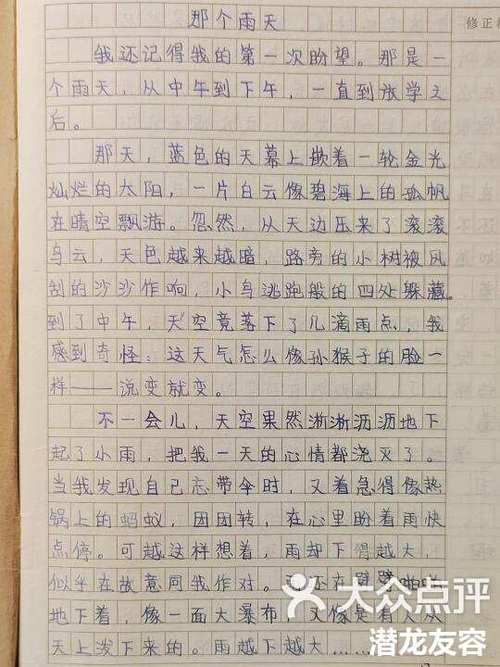 那个雨天
修正
我还记得我的第一次盼望。那是一
个雨天，从中午到下午，一直到放学之
后。
那天，蓝色的天幕上嵌着一轮金光
灿烂的太阳，一片白云像碧海上的孤帆
在晴空飘游。忽然，从天边压来了滚滚
乌云，天色越来越暗，路旁的小树被风
刮的沙沙作响，小鸟逃跑般的四处躲藏。
到了中午，天空竟落下了几滴雨点，我
感到奇怪：这天气怎么像孙猴子的脸一
样——说变就变。
不一会儿，天空果然淅淅沥沥地下
起了小雨，把我一天的心情都浇灭了。
当我发现自己忘带伞时，又着急得像热
锅上的蚂蚁，团团转，在心里盼着雨快
点停。可越这样想着，雨却下得越大，
似乎在故意同我作对。还在啪啪
地下着，像一面大瀑布，又像是有人从
天上泼下来的。雨越下越大……
大众点评
潜龙友容